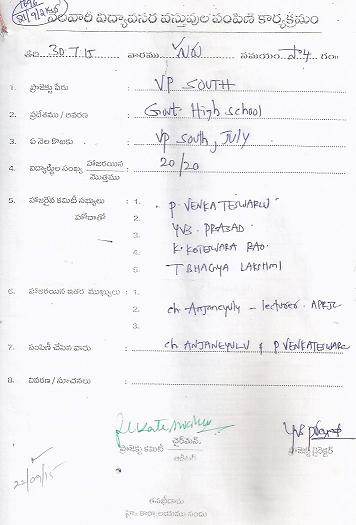 నెలవారీ విద్యావసర వస్తువుల పంపిణీ కార్యక్రమం
తేది 30.7.15 వారము సమయం సా 4 గం॥
1. ప్రాజెక్టు పేరు : VP SOUTH
2. ప్రదేశము / ఆవరణ : Govt High School
3. ఏ నెల కొఱకు : VP South, JULY
4. విద్యార్థుల సంఖ్య హాజరయిన/మొత్తము : 20/20
5. హాజరైన కమిటీ సభ్యులు : 1. P VENKATESWARLU
హోదాతో 2. YVB. PRASAD
3. K. KOTESWARA RAO
4.
5. T BHAGYA LAKSHMI
6. హాజరయిన ఇతర ముఖ్యులు : 1.
2. ch. Anjaneyulu - lecturer. APRJC
3.
7. పంపిణీ చేసిన వారు : ch ANJANEYULU & P VENKATESWARL
8. వివరణ / సూచనలు :
ప్రాజెక్టు కమిటీ ఛైర్మన్. ప్రాజెక్టు డైరెక్టర్
ఆడిటర్
22/09/15